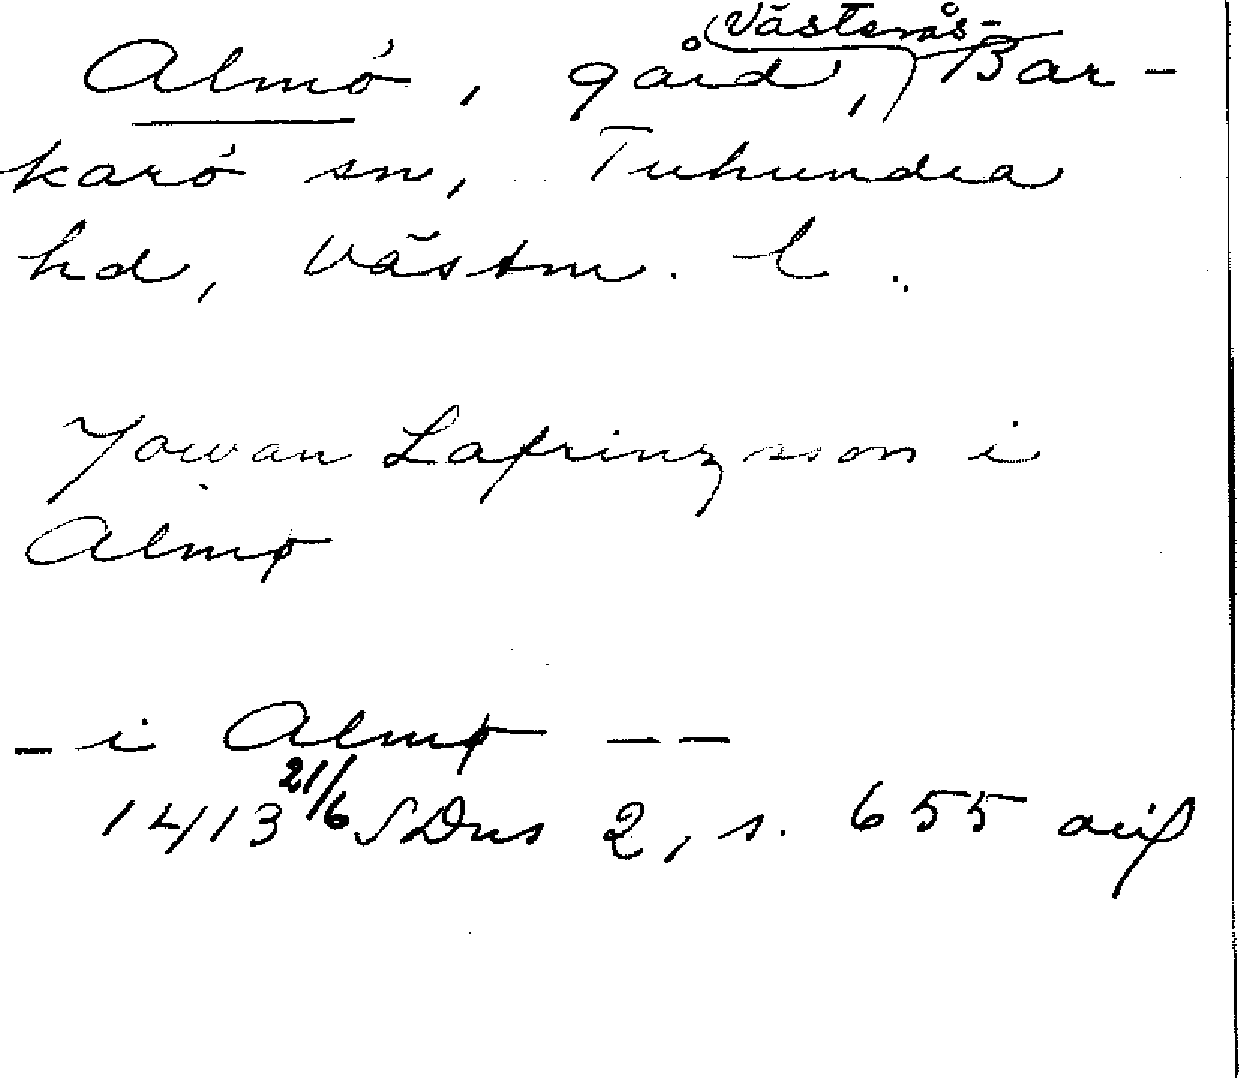 Almö, gård, Västerås-Bar-
karö sn, Tuhundra
hd, Västm. l.
Jowan Lafrinzsson i
Almø
- i Almø --
1413 21/6 SDns 2, s. 655 avsk